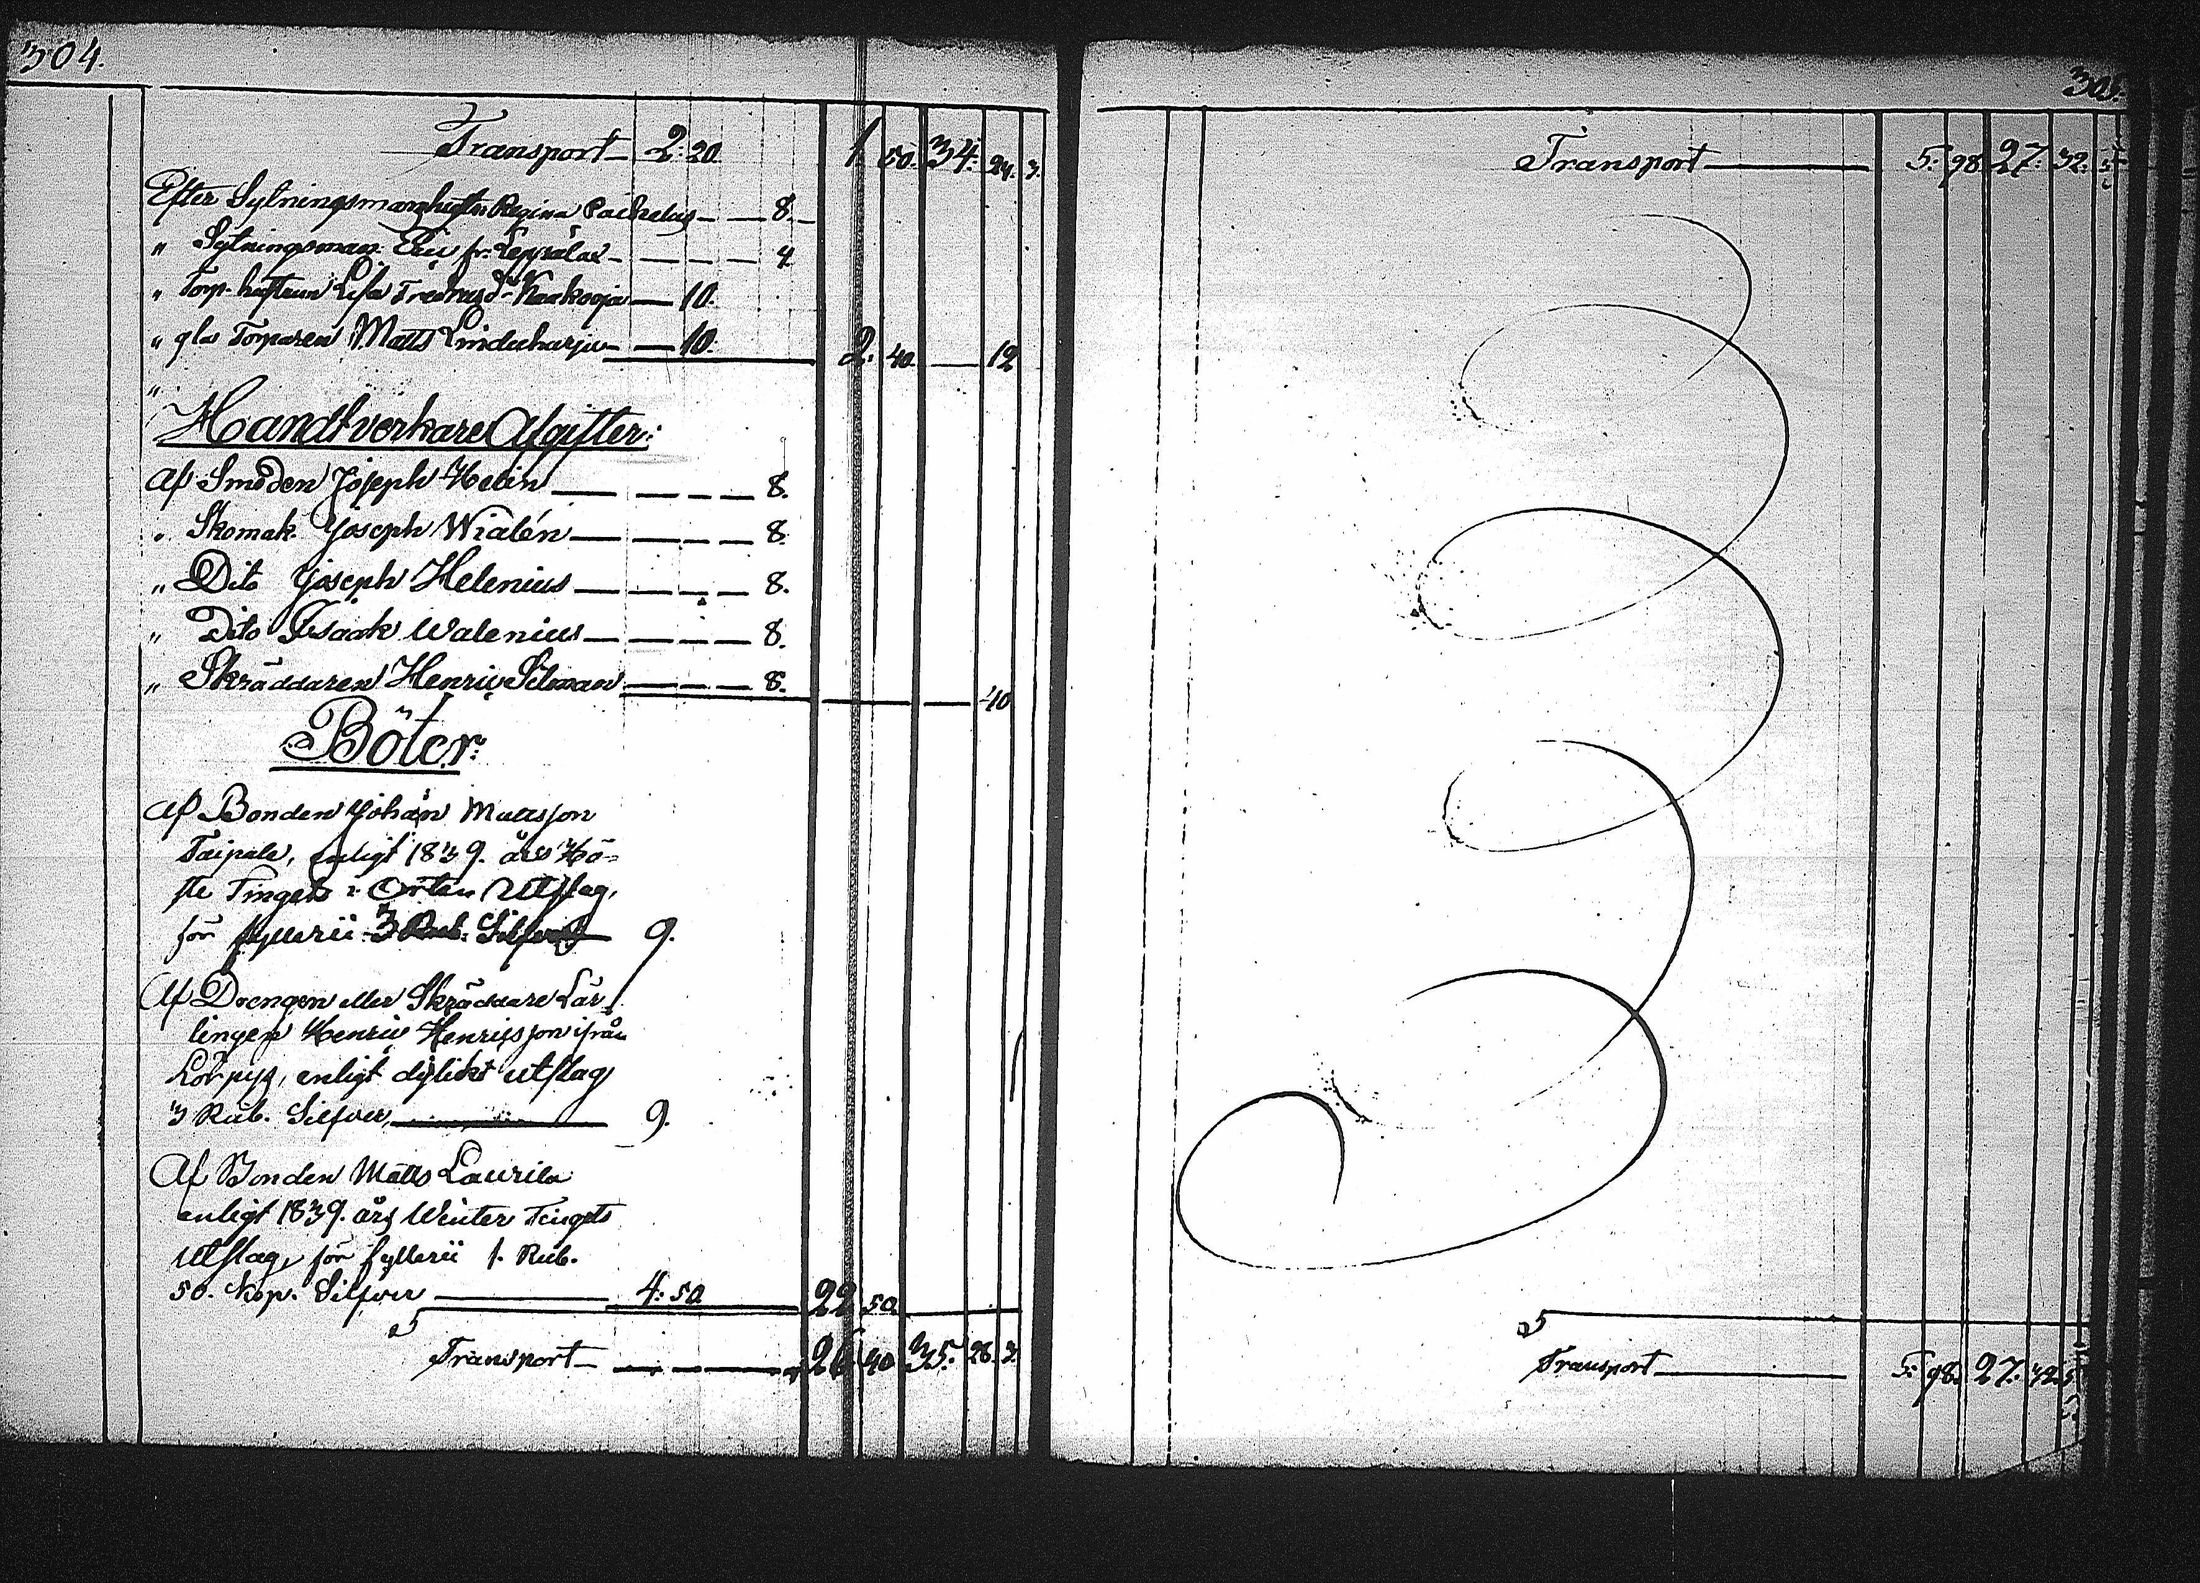 304.
Transport 2. 20. 1. 50. 34. 24. 3.
Efter Sytningsmans hustrun Regina 8.
" Sytningsman Eric fr. Leppälax 4.
" Torp. hustrun Lisa 10.
" gla Torparen Matts Linduharju 10. 2. 40. 12
"
Handtverkare Afgifter:
Af Smeden Joseph Helin 8.
" Skomak. Joseph Wialén 8.
" Dito Joseph Helenius 8.
" Dito Isaak Walenius 8.
" Skräddaren Henric Silman 8. 40
Böter:
Af Bonden Johan Mattsson
Taipale, enligt 1839. års Hö=
ste Tingets i Orten Utslag,
för fyllerii 3 Rub. Silfver 9.
Af Drengen eller Skräddare Lär
lingen Henric Henricsson ifrån
Lörpys, enligt dylikt utslag
3 Rub. Silfver, 9.
Af Bonden Matts Laurila
enligt 1839. års Winter Tingets
Utslag, för fylleri 1. Rub.
50. Kop. Silfver 4. 50. 22 50.
Transport 26 40 35. 28. 3.
305.
Transport 5. 98. 27. 32. 5
Transport 5. 98. 27. 32. 5